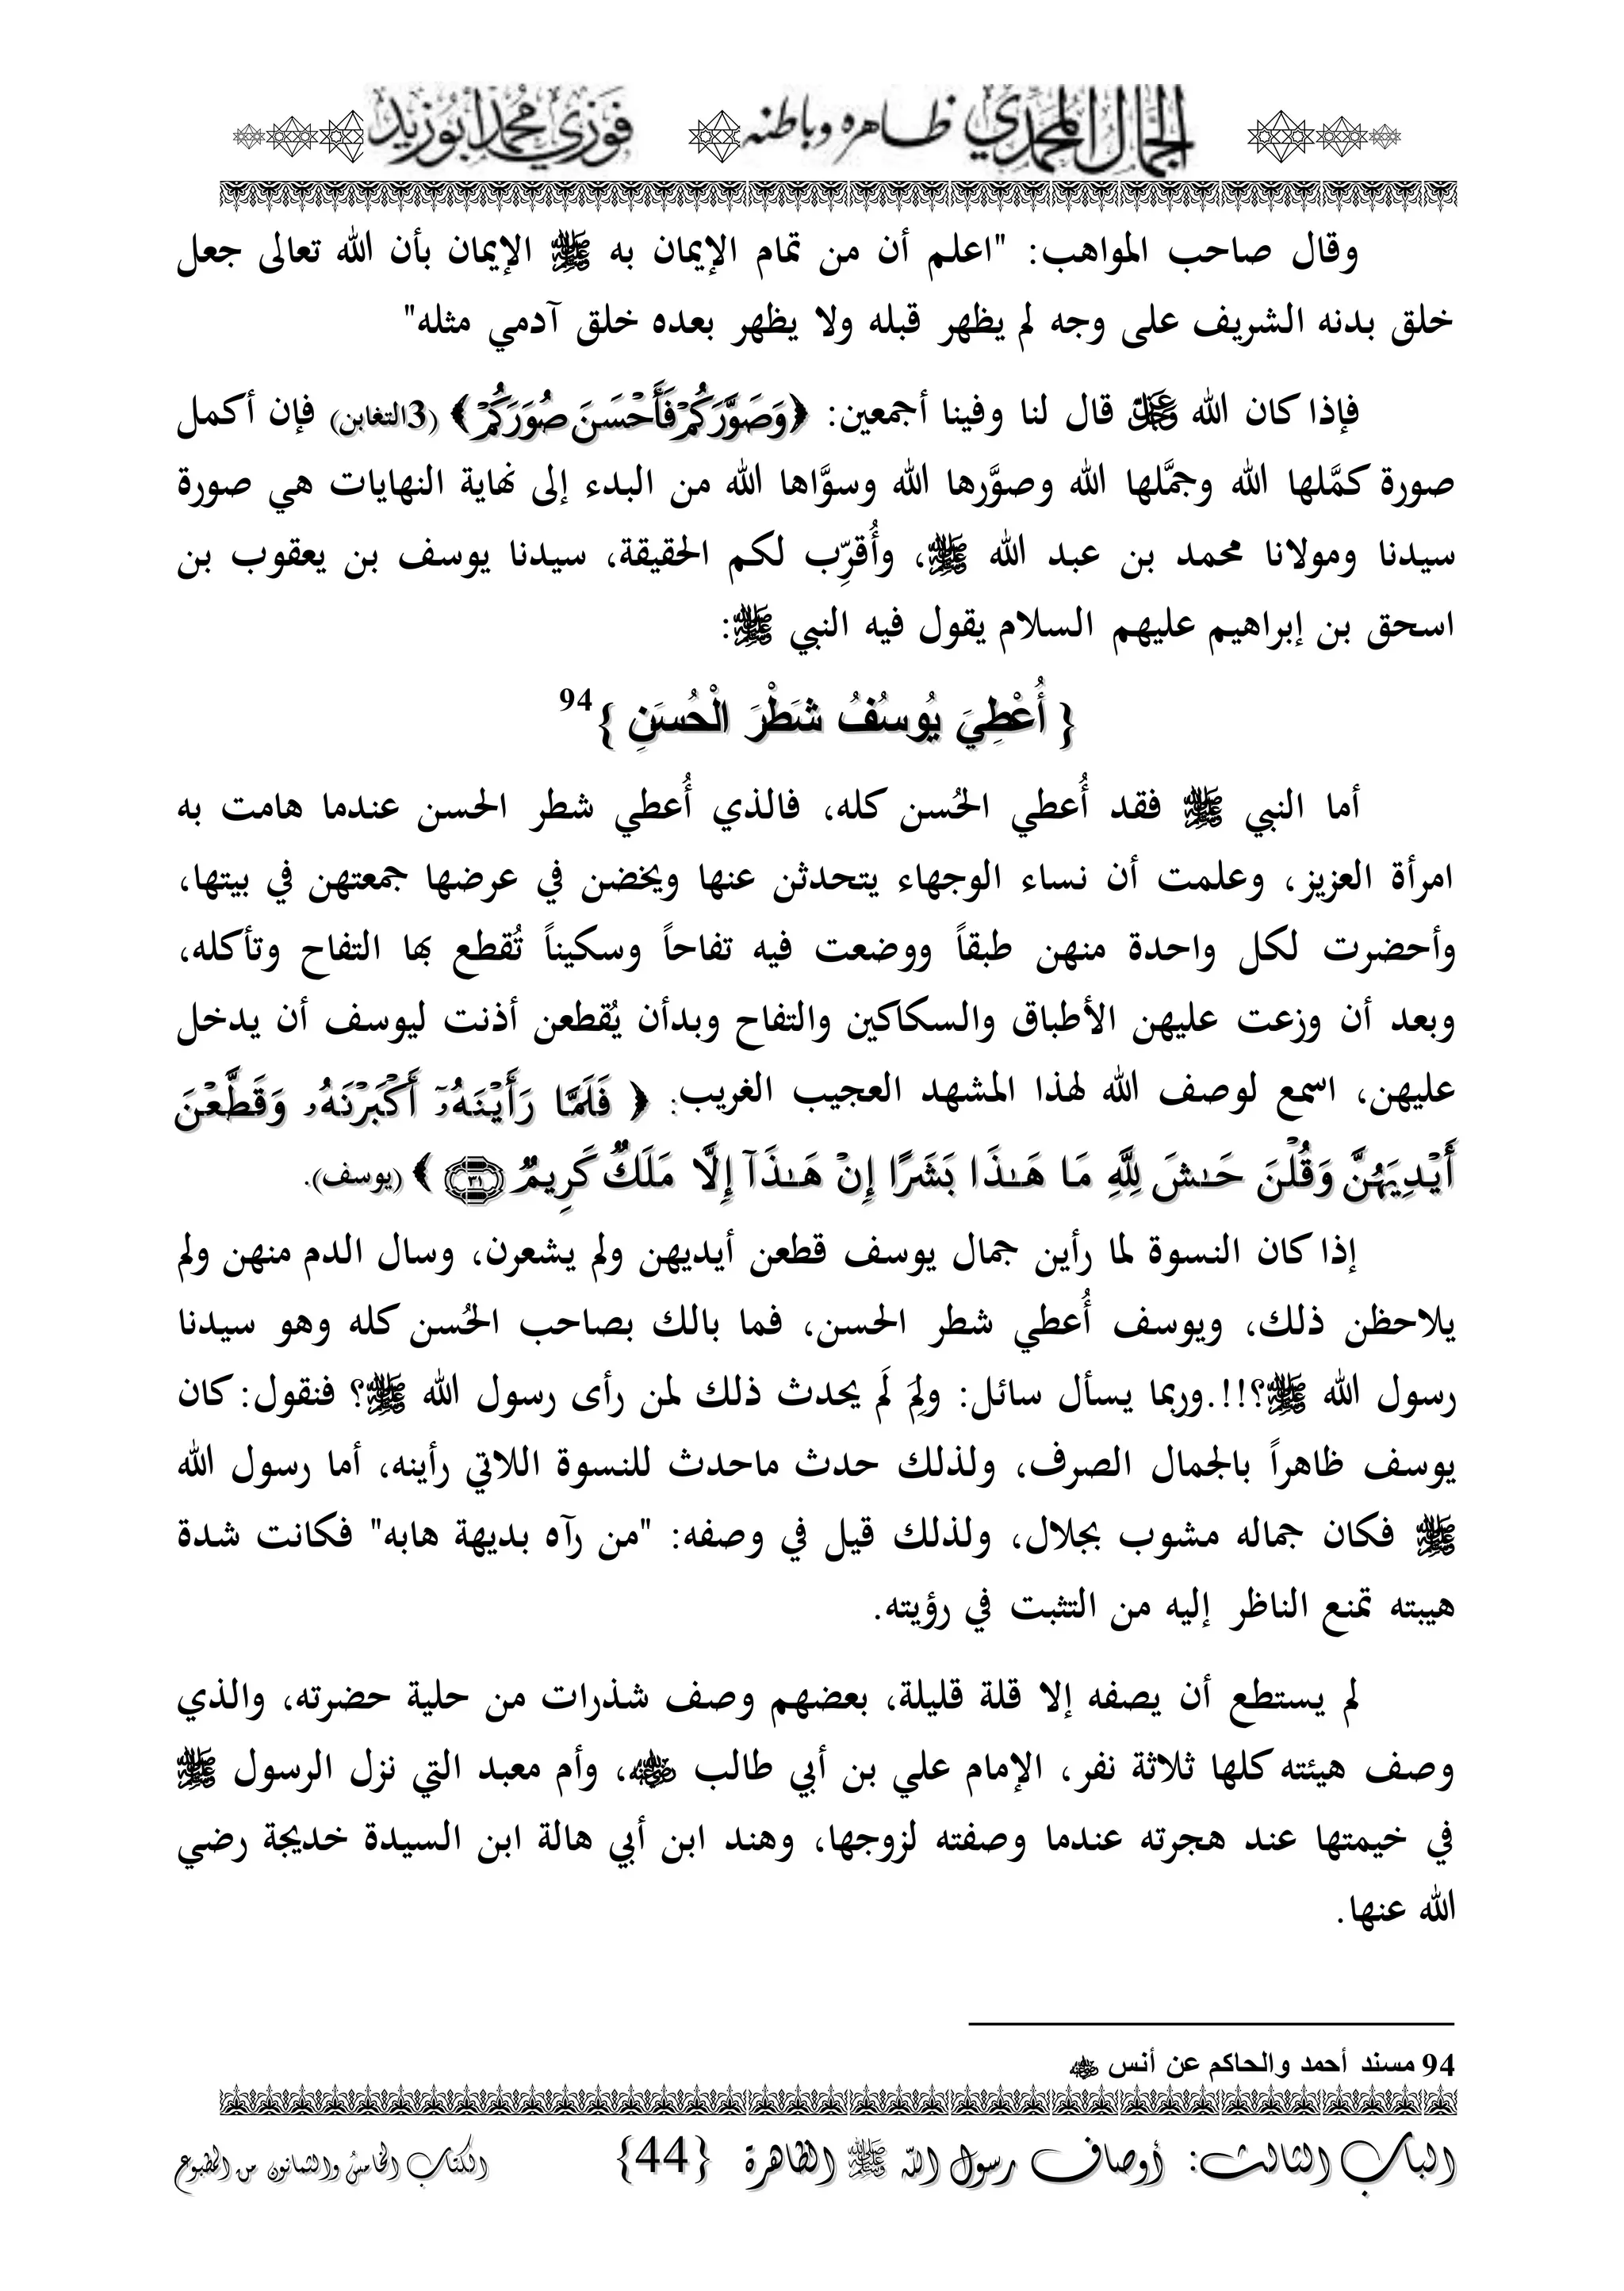 الجمال المحمدي ظاهره وباطنه فوزي محمد أبوزيد
وقال صاحب المواهب: "اعلم أن من تمام الإيمان به ﷺ الإيمان بأن الله تعالى جعل
خلق بدنه الشريف على وجه لم يظهر قبله ولا يظهر بعده خلق آدمي مثله"
فإذا كان الله ﷻ قال لنا وفينا أجمعين: ﴿ وَصَوَّرَكُمْ فَأَحْسَنَ صُوَرَكُمْ ﴾ (3التغابن) فإن أكمل
صورة كمَّلها الله وجمَّلها الله وصوَّرها الله وسوَّاها الله من البدء إلى نهاية النهايات هي صورة
سيدنا ومولانا محمد بن عبد الله ﷺ، وأُقرِّب لكم الحقيقة، سيدنا يوسف بن يعقوب بن
اسحق بن إبراهيم عليهم السلام يقول فيه النبي ﷺ:
{ أُعْطِيَ يُوسُفُ شَطْرَ الْحُسَنِ }94
أما النبي ﷺ فقد أُعطي الحُسن كله، فالذي أُعطي شطر الحسن عندما هامت به
امرأة العزيز، وعلمت أن نساء الوجهاء يتحدثن عنها ويخضن في عرضها جمعتهن في بيتها،
وأحضرت لكل واحدة منهن طبقاً ووضعت فيه تفاحاً وسكيناً تُقطع بها التفاح وتأكله،
وبعد أن وزعت عليهن الأطباق والسكاكين والتفاح وبدأن يُقطعن أذنت ليوسف أن يدخل
عليهن، اسمع لوصف الله لهذا المشهد العجيب الغريب: ﴿ فَلَمَّا رَأَيْنَهُۥٓ أَكْبَرْنَهُۥ وَقَطَّعْنَ
أَيْدِيَهُنَّ وَقُلْنَ حَـٰشَ لِلَّهِ مَا هَـٰذَا بَشَرًا إِنْ هَـٰذَآ إِلَّا مَلَكٌ كَرِيمٌ ٣١ ﴾ (يوسف).
إذا كان النسوة لما رأين جمال يوسف قطعن أيديهن ولم يشعرن، وسال الدم منهن ولم
يلاحظن ذلك، ويوسف أُعطي شطر الحسن، فما بالك بصاحب الحُسن كله وهو سيدنا
رسول الله ﷺ؟!!.وربما يسأل سائل: ولِمَ لَم يحدث ذلك لمن رأى رسول الله ﷺ؟ فنقول: كان
يوسف ظاهراً بالجمال الصرف، ولذلك حدث ماحدث للنسوة اللاتي رأينه، أما رسول الله
ﷺ فكان جماله مشوب بجلال، ولذلك قيل في وصفه: "من رآه بديهة هابه" فكانت شدة
هيبته تمنع الناظر إليه من التثبت في رؤيته.
لم يستطع أن يصفه إلا قلة قليلة، بعضهم وصف شذرات من حلية حضرته، والذي
وصف هيئته كلها ثلاثة نفر، الإمام علي بن أبي طالب ؓ، وأم معبد التي نزل الرسول ﷺ
في خيمتها عند هجرته عندما وصفته لزوجها، وهند ابن أبي هالة ابن السيدة خديجة رضي
الله عنها.
94 مسند أحمد والحاكم عن أنس ؓ
الباب الثالث: أوصاف رسول الله ﷺ الظاهرة {44} الكتاب الخامس والثمانون من المطبوع